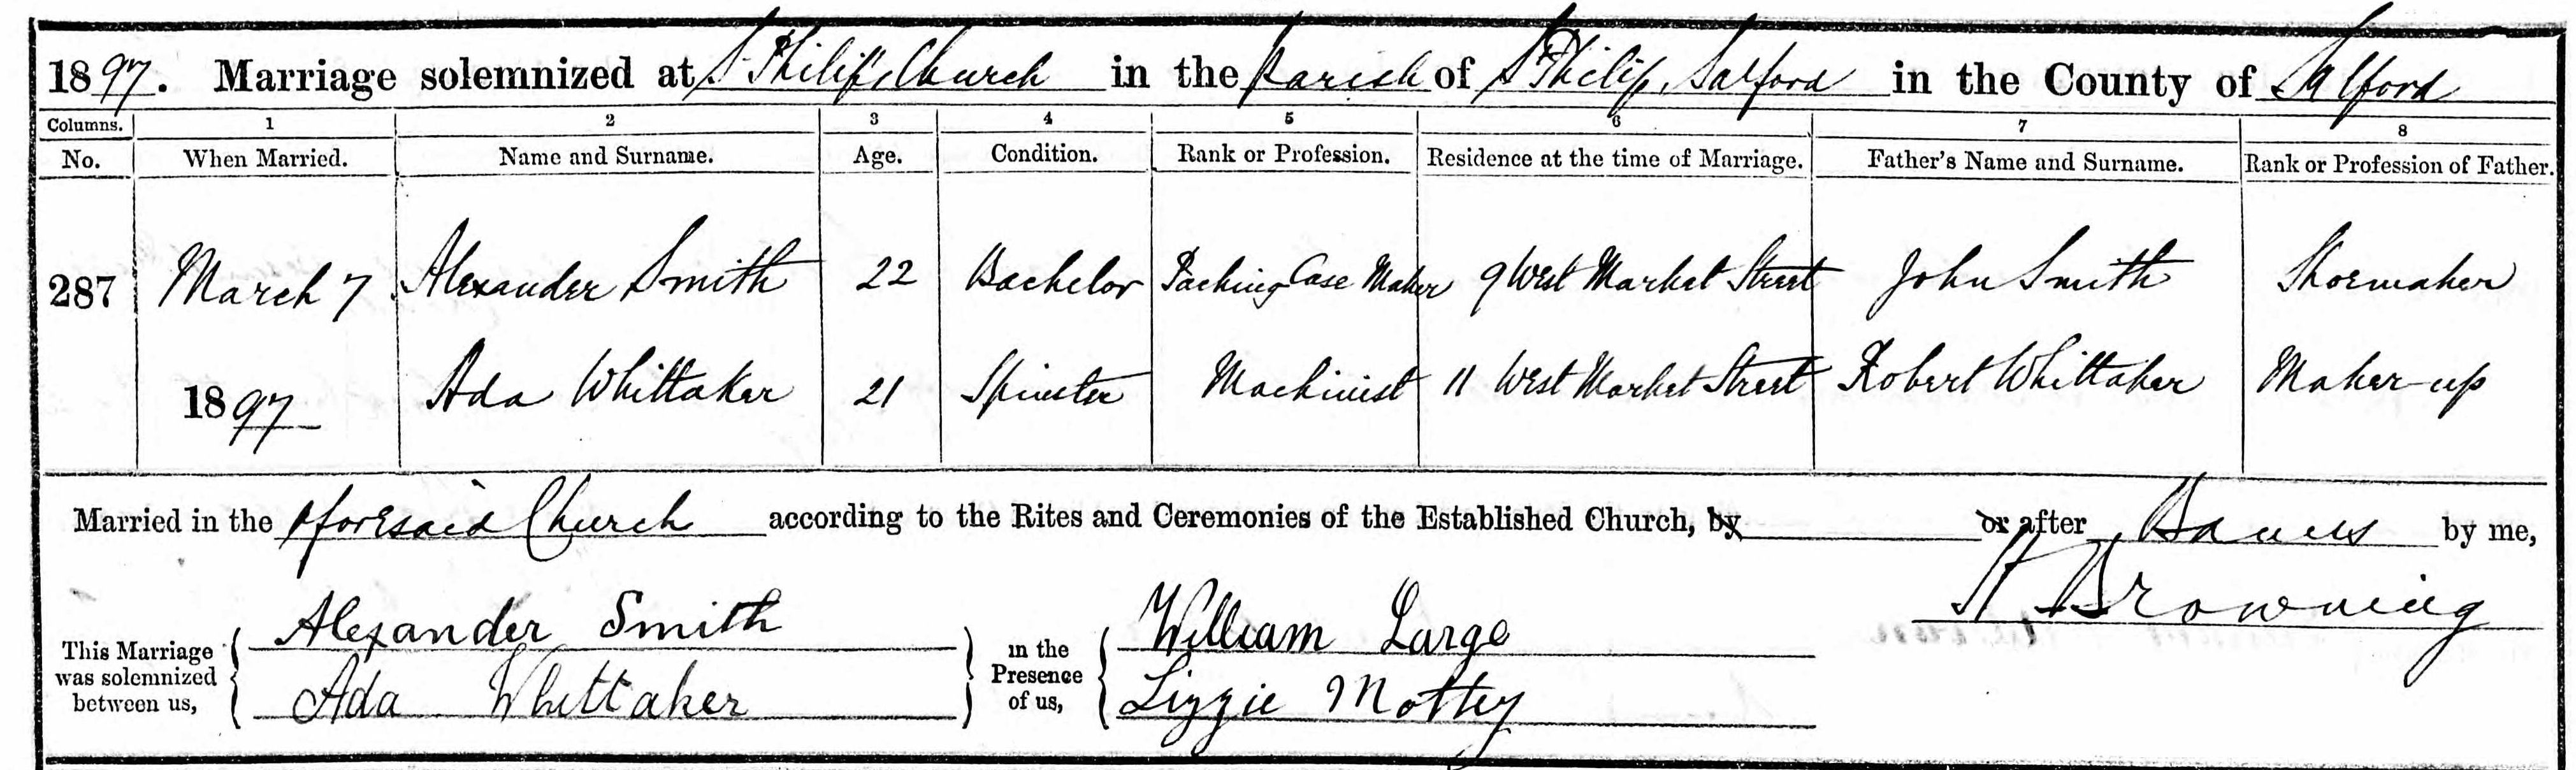 1897. Marriage solemnized at St Philip's Church in the Parish of St Philip, Salford in the County of Salford
Columns. 1 2 3 4 5 6 7 8
No. When Married. Name and Surname. Age. Condition. Rank or Profession. Residence at the time of Marriage. Father's Name and Surname. Rank or Profession of Father.
287 March 7 Alexander Smith 22 Bachelor Packing Case Maker 9 West Market Street John Smith Shoemaker
1897 Ada Whittaker 21 Spinster Machinist 11 West Market Street Robert Whittaker Maker-up
Married in the aforesaid Church according to the Rites and Ceremonies of the Established Church, by or after Banns by me,
H Browning
This Marriage was solemnized between us, Alexander Smith Ada Whittaker in the Presence of us, William Large Lizzie Mottey